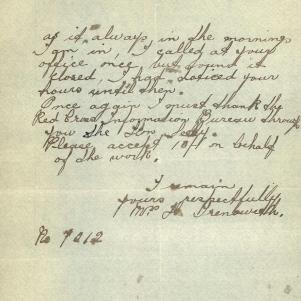 as it always in the mornings
I am in, I called at your
office once, but found it
closed, I had noticed your
hours until then.
Once again I must thank the
Red Cross Information Bureau through
you the Hon Secy.
Please accept 10/- on behalf
of the work.
I remain
yours respectfully
Mrs H.
No 7012